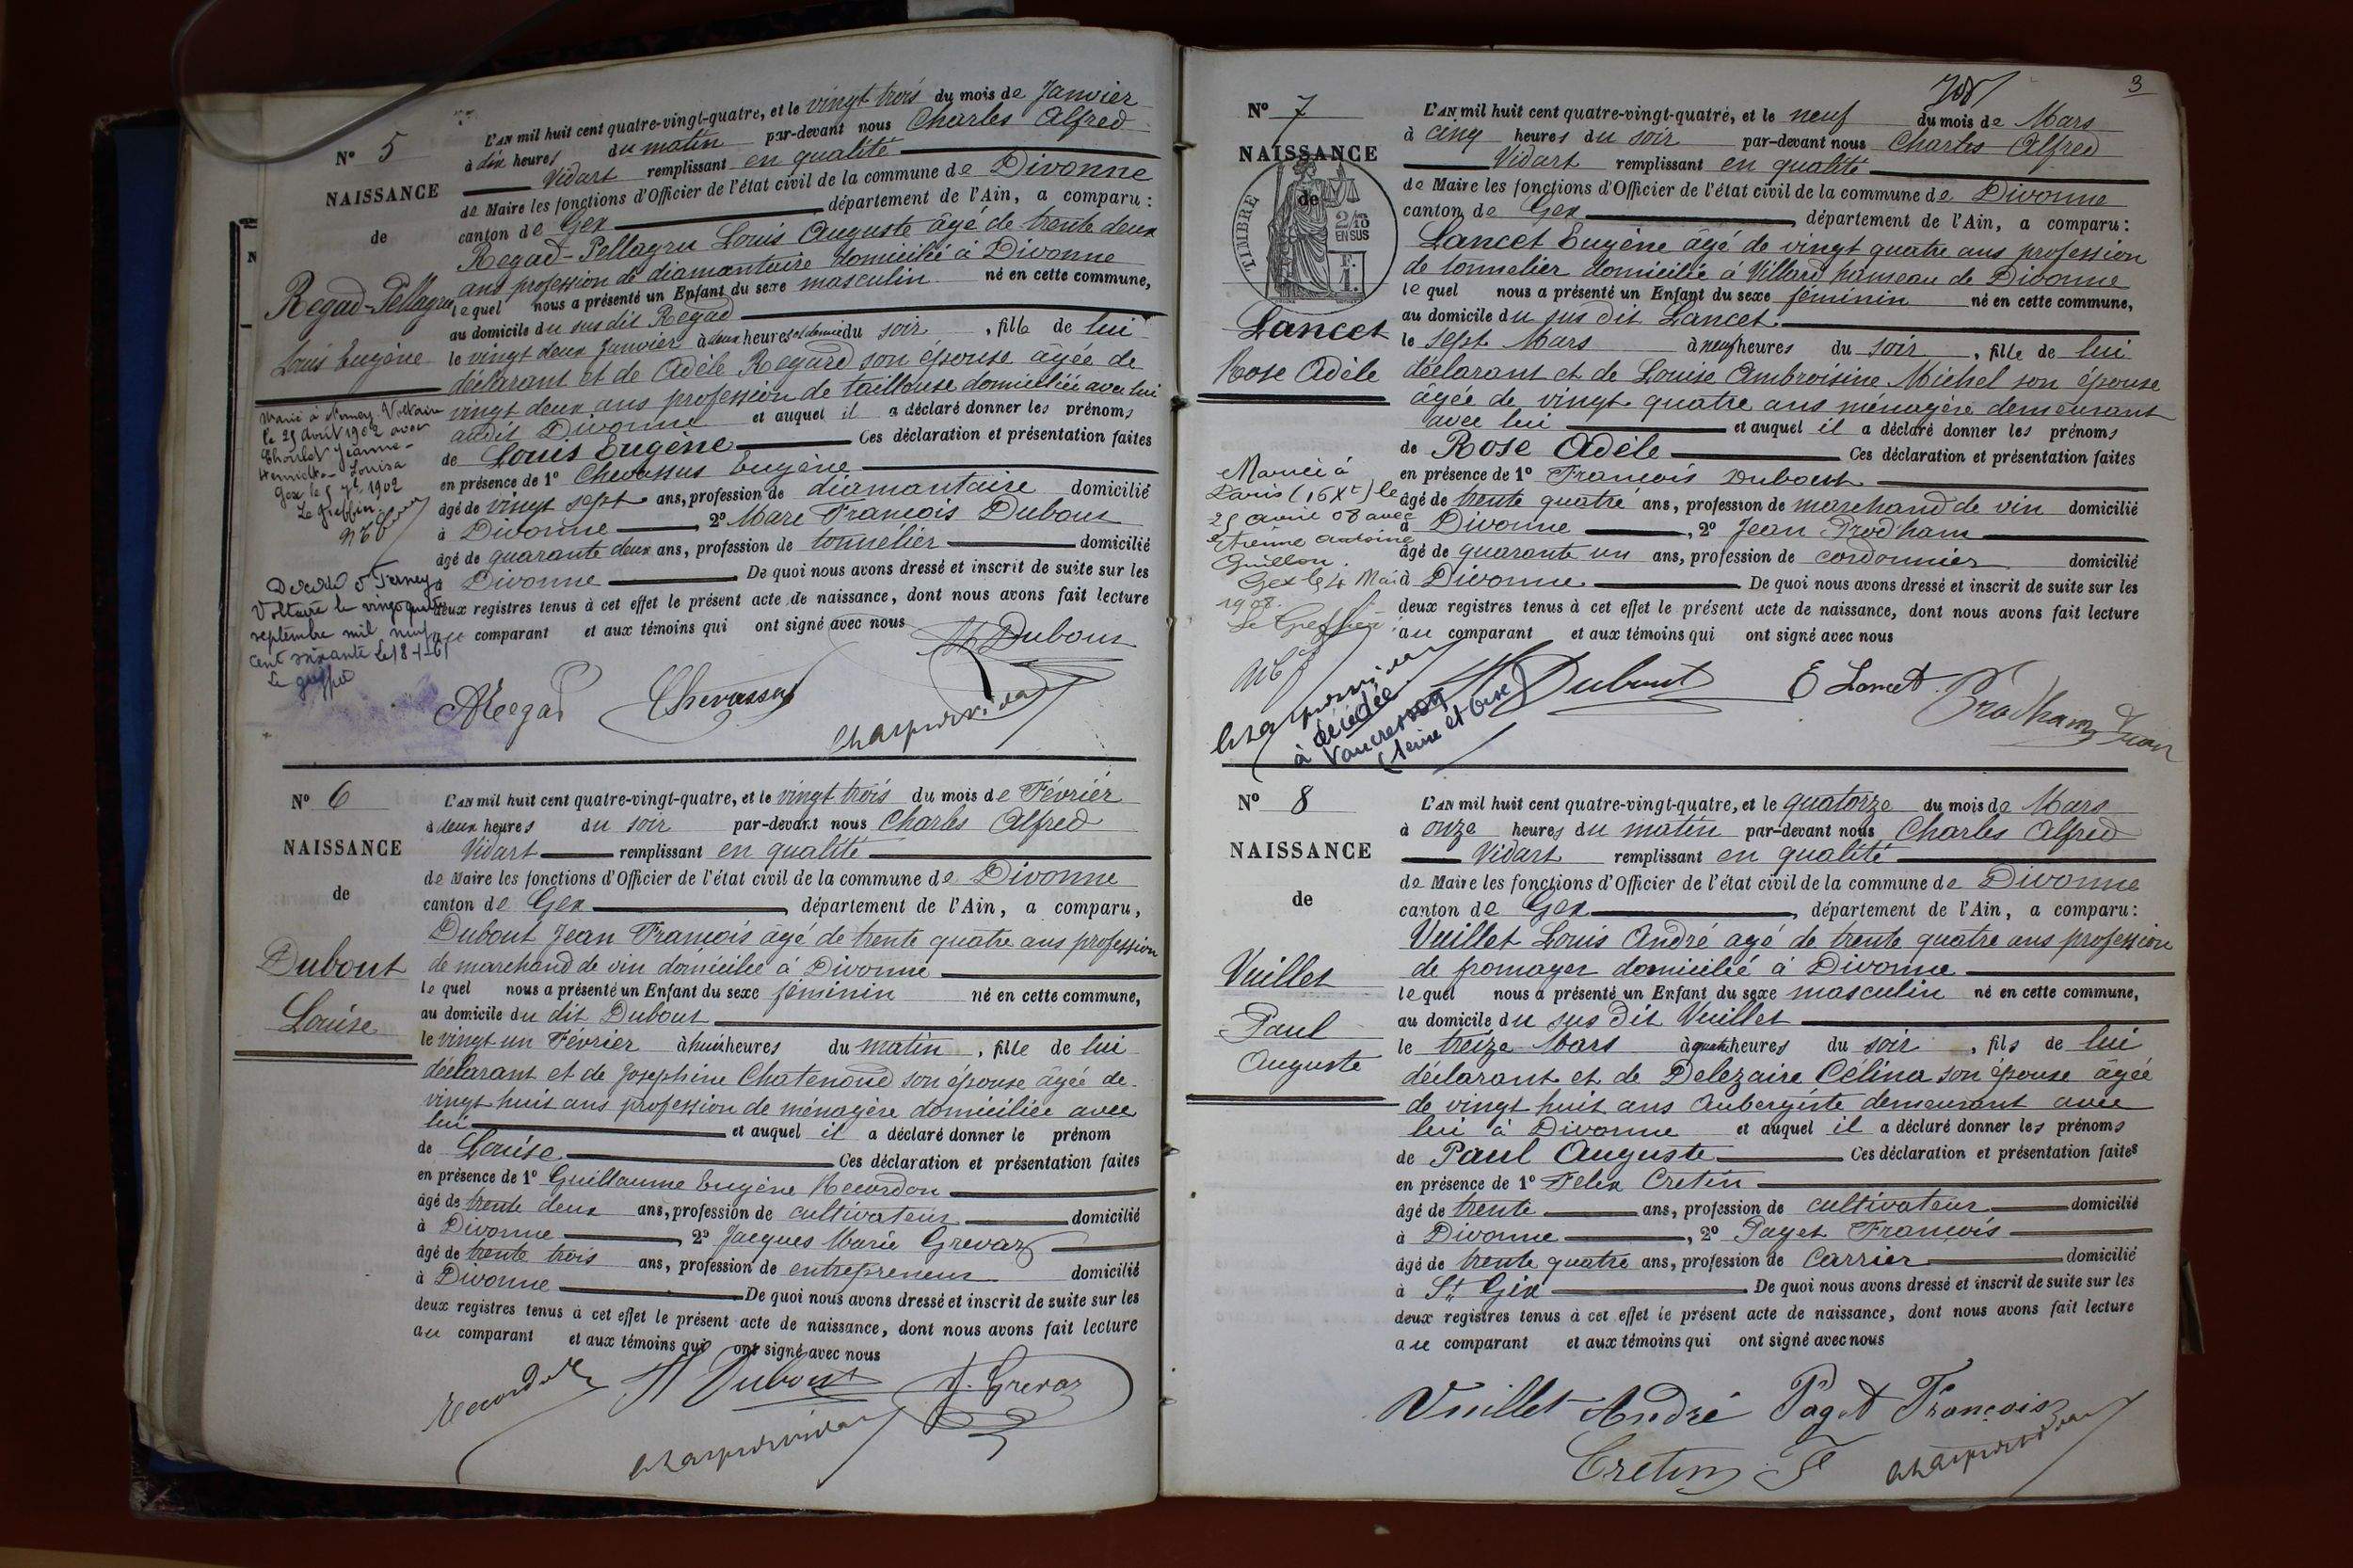 N° 5
NAISSANCE
de
Regad-Pellagru
Louis Eugène
Marié à Ferney-Voltaire
le 25 Avril 1902 avec
Jeanne-
Henriette-Louisa
Gex le 5 1902
Le Greffier
Décédé à Ferney
Voltaire le vingt quatre
septembre mil neuf
cent soixante Le 18-1-61
Le greffier
L'AN mil huit cent quatre-vingt-quatre, et le vingt trois du mois de Janvier
à dix heures du matin par-devant nous Charles Alfred
Vidart remplissant en qualité
de Maire les fonctions d'Officier de l'état civil de la commune de Divonne
canton de Gex département de l'Ain, a comparu :
Regad-Pellagru Louis Auguste âgé de trente deux
ans profession de diamantaire domicilié à Divonne
lequel nous a présenté un Enfant du sexe masculin né en cette commune,
au domicile du sus dit Regad
le vingt deux Janvier à deux heures et demie du soir, fils de lui
déclarant et de Adèle Regard son épouse âgée de
vingt deux ans profession de tailleuse domiciliée avec lui
audit Divonne et auquel il a déclaré donner les prénoms
de Louis Eugène Ces déclaration et présentation faites
en présence de 1° Chevassus Eugène
âgé de vingt sept ans, profession de diamantaire domicilié
à Divonne 2° Marc François Dubout
âgé de quarante deux ans, profession de tonnelier domicilié
à Divonne De quoi nous avons dressé et inscrit de suite sur les
deux registres tenus à cet effet le présent acte de naissance, dont nous avons fait lecture
au comparant et aux témoins qui ont signé avec nous
Dubout
ARegad Chevassus
N° 6
NAISSANCE
de
Dubout
Louise
L'AN mil huit cent quatre-vingt-quatre, et le vingt trois du mois de Février
à deux heures du soir par-devant nous Charles Alfred
Vidart remplissant en qualité
de Maire les fonctions d'Officier de l'état civil de la commune de Divonne
canton de Gex département de l'Ain, a comparu,
Dubout Jean François âgé de trente quatre ans profession
de marchand de vin domicilié à Divonne
lequel nous a présenté un Enfant du sexe féminin né en cette commune,
au domicile du dit Dubout
le vingt un Février à huit heures du matin, fille de lui
déclarant et de Josephine Chatenoud son épouse âgée de
vingt huit ans profession de ménagère domiciliée avec
lui et auquel il a déclaré donner le prénom
de Louise Ces déclaration et présentation faites
en présence de 1° Guillaume Eugène Recordon
âgé de trente deux ans, profession de cultivateur domicilié
à Divonne 2° Jacques Marie Grevaz
âgé de trente trois ans, profession de entrepreneur domicilié
à Divonne De quoi nous avons dressé et inscrit de suite sur les
deux registres tenus à cet effet le présent acte de naissance, dont nous avons fait lecture
au comparant et aux témoins qui ont signé avec nous
Recordon Dubout J. Grevaz
3
N° 7
NAISSANCE
de
TIMBRE
2/10
EN SUS
F.
1.
Lancet
Rose Adèle
Mariée à
Paris (16e) le
25 avril 08 avec
Etienne Antoine
Guillon.
Gex le 4 Mai
1908.
Le Greffier
décédée
à Vaucresson
(Seine et Oise)
L'AN mil huit cent quatre-vingt-quatre, et le neuf du mois de Mars
à cinq heures du soir par-devant nous Charles Alfred
Vidart remplissant en qualité
de Maire les fonctions d'Officier de l'état civil de la commune de Divonne
canton de Gex, département de l'Ain, a comparu :
Lancet Eugène âgé de vingt quatre ans profession
de tonnelier domicilié à Villard hameau de Divonne
lequel nous a présenté un Enfant du sexe féminin né en cette commune,
au domicile du sus dit Lancet
le sept Mars à neuf heures du soir, fille de lui
déclarant et de Louise Ambroisine Michel son épouse
âgée de vingt quatre ans ménagère demeurant
avec lui et auquel il a déclaré donner les prénoms
de Rose Adèle Ces déclaration et présentation faites
en présence de 1° François Dubout
âgé de trente quatre ans, profession de marchand de vin domicilié
à Divonne, 2° Jean Prodham
âgé de quarante un ans, profession de cordonnier domicilié
à Divonne De quoi nous avons dressé et inscrit de suite sur les
deux registres tenus à cet effet le présent acte de naissance, dont nous avons fait lecture
au comparant et aux témoins qui ont signé avec nous
Dubout E Lancet Prodham Jean
N° 8
NAISSANCE
de
Vuillet
Paul
Auguste
L'AN mil huit cent quatre-vingt-quatre, et le quatorze du mois de Mars
à onze heures du matin par-devant nous Charles Alfred
Vidart remplissant en qualité
de Maire les fonctions d'Officier de l'état civil de la commune de Divonne
canton de Gex, département de l'Ain, a comparu :
Vuillet Louis André agé de trente quatre ans profession
de fromager domicilié à Divonne
lequel nous a présenté un Enfant du sexe masculin né en cette commune,
au domicile du sus dit Vuillet
le treize Mars à quatre heures du soir, fils de lui
déclarant et de Delezaire Célina son épouse âgée
de vingt huit ans Aubergiste demeurant avec
lui à Divonne et auquel il a déclaré donner les prénoms
de Paul Auguste Ces déclaration et présentation faites
en présence de 1° Felix Cretin
âgé de trente ans, profession de cultivateur domicilié
à Divonne, 2° Paget François
âgé de trente quatre ans, profession de carrier domicilié
à St Gix De quoi nous avons dressé et inscrit de suite sur les
deux registres tenus à cet effet le présent acte de naissance, dont nous avons fait lecture
au comparant et aux témoins qui ont signé avec nous
Vuillet André Paget François
Cretin F